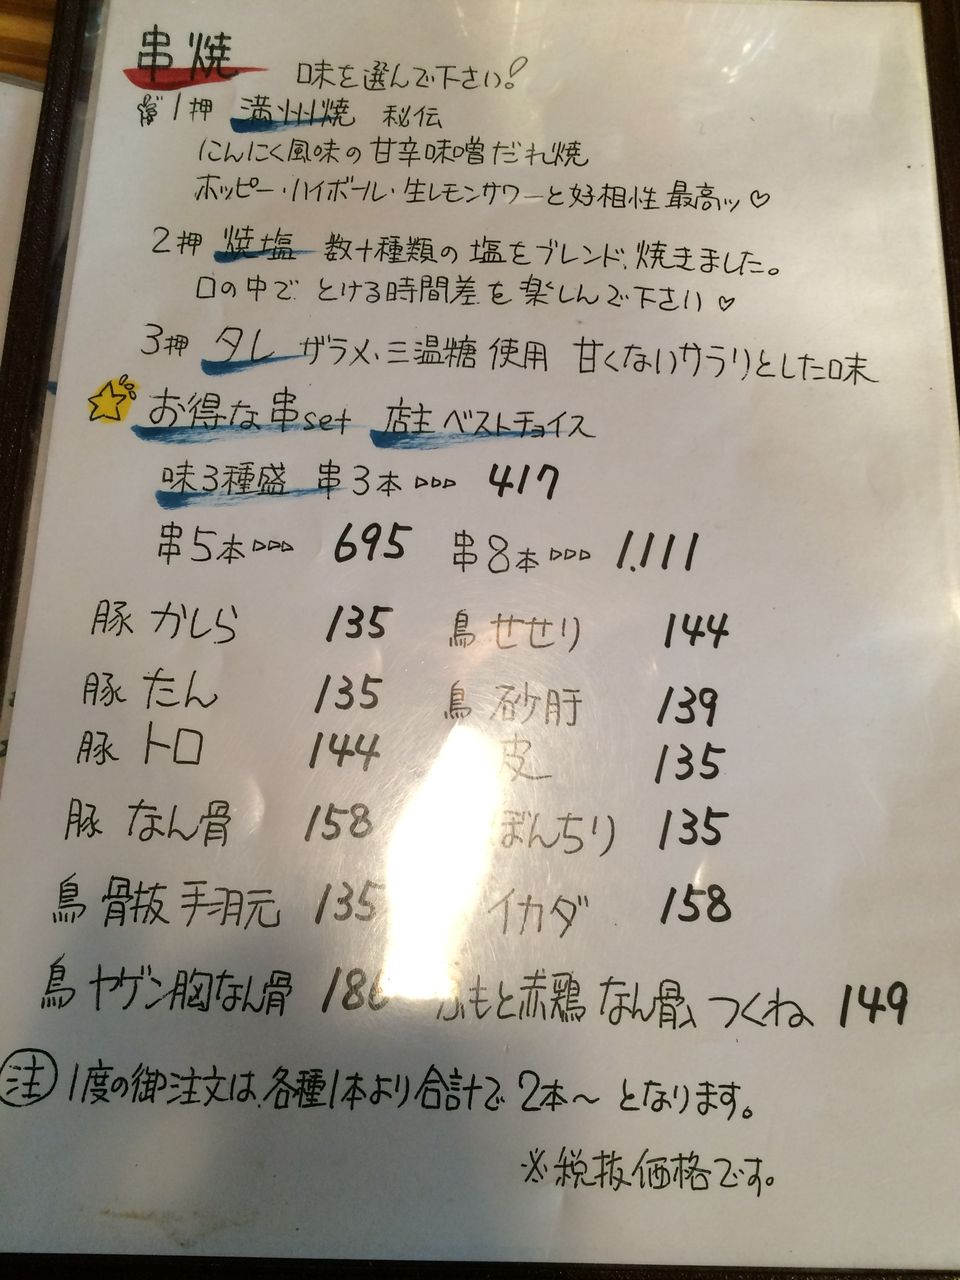 串焼 味を選んで下さい!
1押 満州焼 秘伝
にんにく風味の甘辛味噌だれ焼
ホッピー・ハイボール・生レモンサワーと好相性 最高ッ♡
2押 焼塩 数十種類の塩をブレンド、焼きました。
口の中で とける時間差を楽しんで下さい♡
3押 タレ ザラメ、三温糖 使用 甘くないサラリとした味
お得な串set 店主ベストチョイス
味3種盛 串3本▷▷▷ 417
串5本▷▷▷ 695 串8本▷▷▷ 1.111
豚 かしら 135 鳥 せせり 144
豚 たん 135 鳥 砂肝 139
豚 トロ 144 皮 135
豚 なん骨 158 ぼんちり 135
鳥 骨抜 手羽元 135 イカダ 158
鳥 ヤゲン胸なん骨 186 ふもと赤鶏 なん骨入 つくね 149
注 1度の御注文は、各種1本より合計で 2本〜 となります。
※税抜価格です。